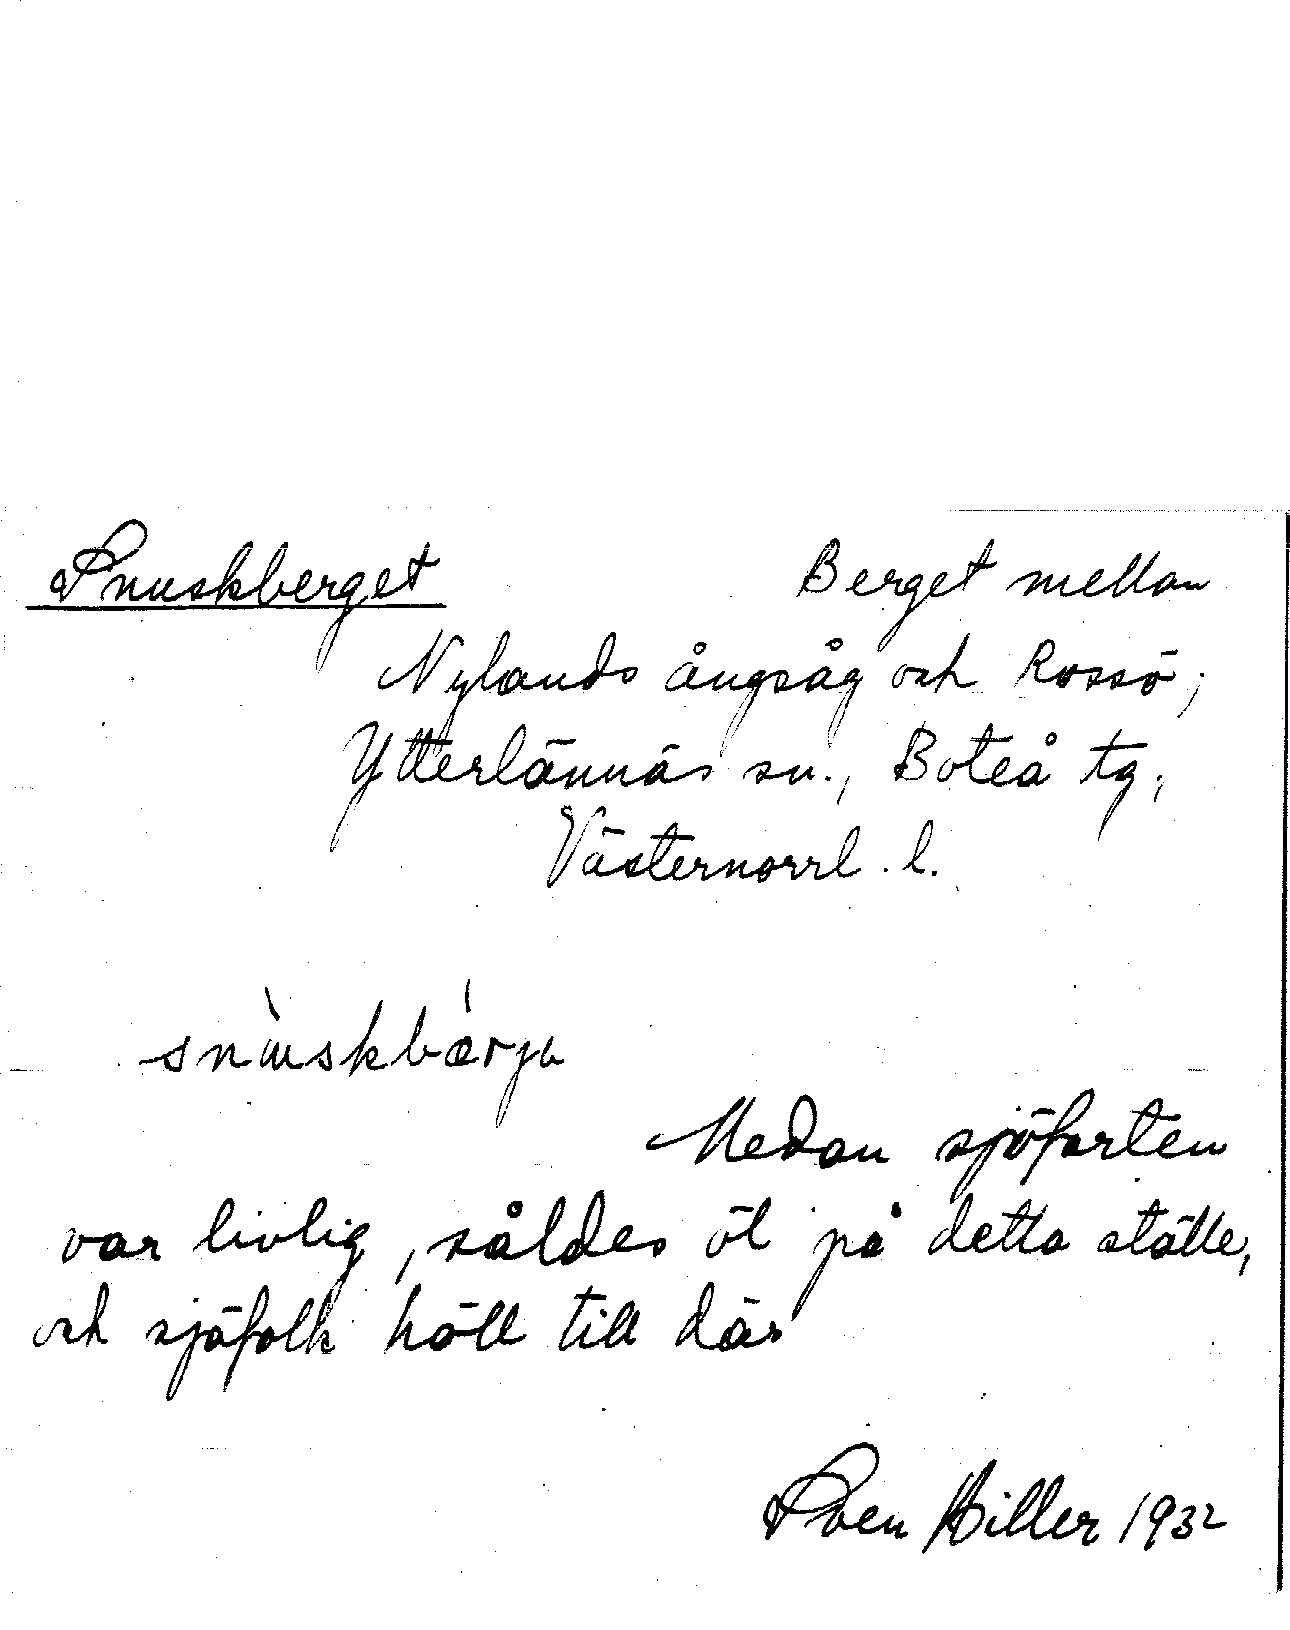 Snuskberget
Berget mellan
Nylands ångsåg och Rossö;
Ytterlännäs sn., Boteå tg,
Västernorrl. l.
snùskbǽrja
Medan sjöfarten
var livlig, såldes öl på detta ställe,
och sjöfolk höll till där
Sven Hiller 1932